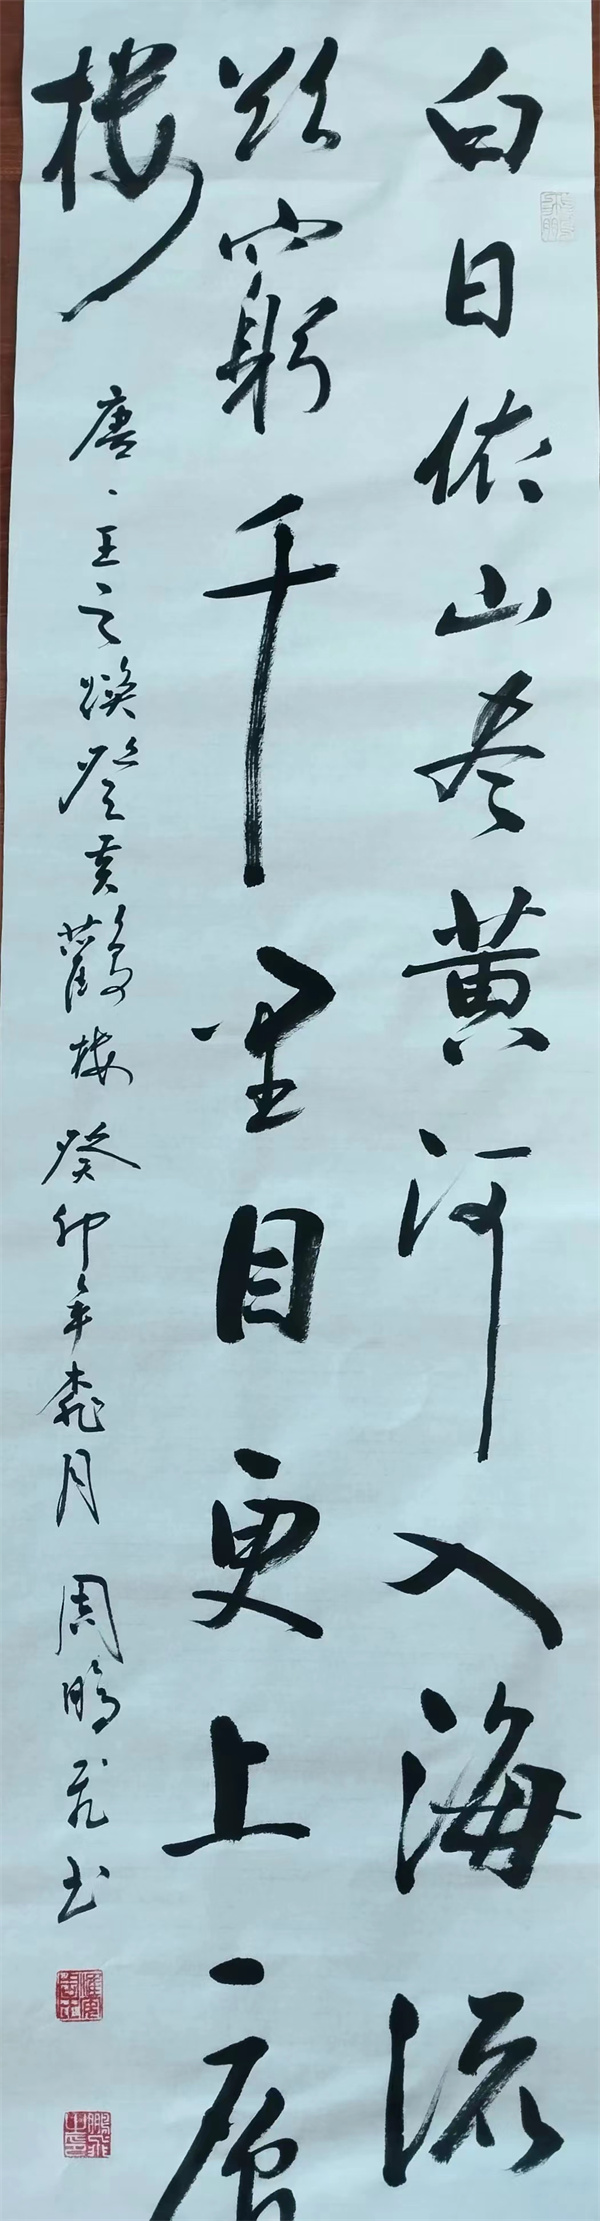 白日依山尽黄河入海流
欲穷千里目更上一层
楼
唐、王之涣登黄鹤楼 癸卯年桃月 周鹏飞书